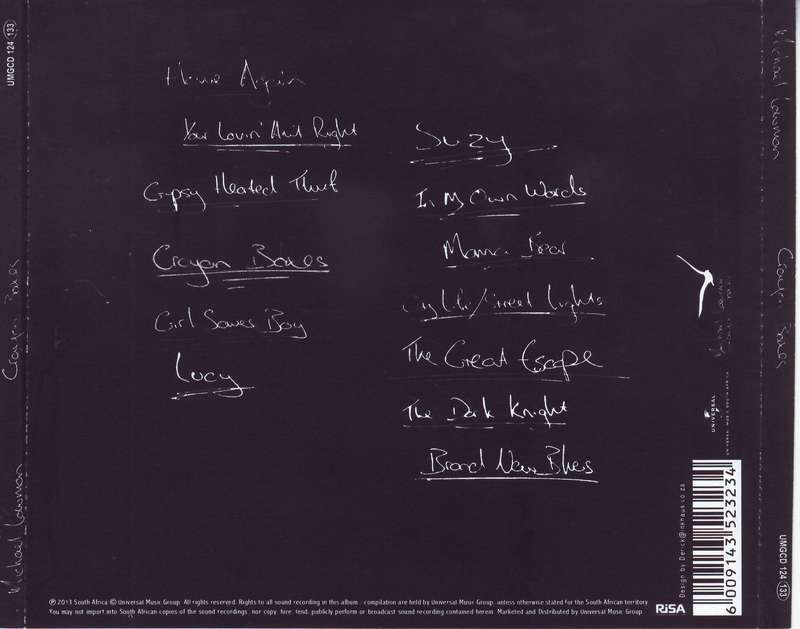 UMGCD 124 133
Michael Lowman
Crayon Boxes
Home Again
Your Lovin' Aint Right
Gypsy Heated Thief
Crayon Boxes
Girl Saves Boy
Lucy
Suzy
In My Own Words
Mama Bear
/Street Lights
The Great Escape
The Dark Knight
Brand New Blues
Michael Lowman
Crayon Boxes
UMGCD 124 133
UNIVERSAL
Design by Derick@inkhaus.co.za
6 009143 523234
RiSA
℗ 2013 South Africa © Universal Music Group. All rights reserved. Rights to all sound recording in this album . compilation are held by Universal Music Group. unless otherwise stated for the South African territory
You may not import into South African copies of the sound recordings . nor copy . hire. lend. publicly perform or broadcast sound recording contained herein. Marketed and Distributed by Universal Music Group